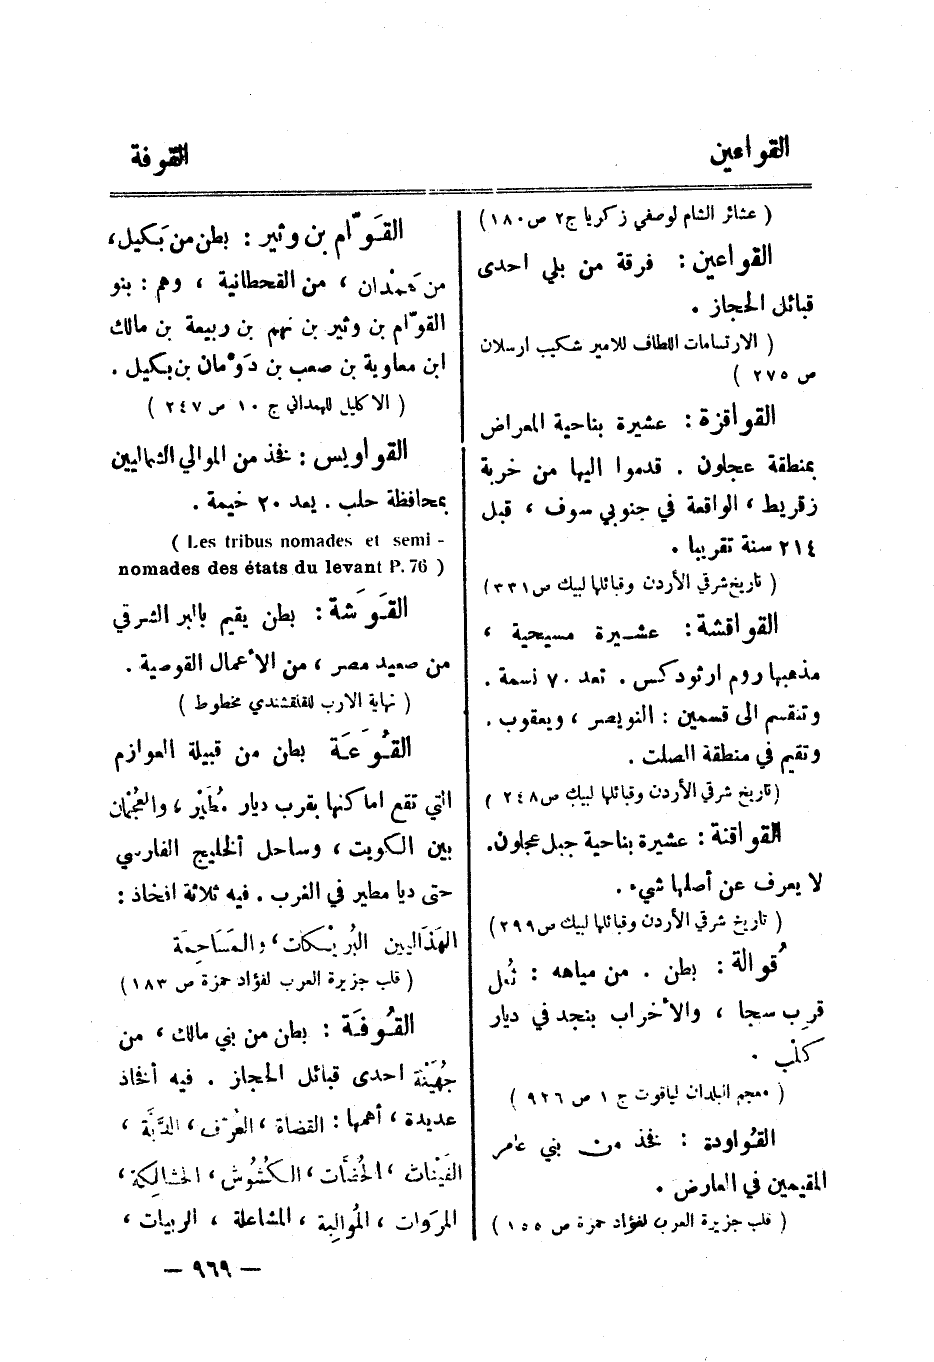 القواعين
القوفة
( عشائر الشام لوصفي زكريا ج٢ ص ١٨٠)
القواعين : فرقة من بلي احدى
قبائل الحجاز .
( الارتسامات اللطاف للامير شكيب ارسلان
ص ٢٧٥ )
القواقزة : عشيرة بناحية المعراض
بمنطقة عجلون . قدموا اليها من خربة
زقريط ، الواقعة في جنوبي سوف ، قبل
٢١٤ سنة تقريبا .
( تاريخ شرقي الأردن وقبائلها لبيك ص ٣٣١)
القواقشة : عشيرة مسيحية ،
مذهبها روم ارثودكس . تعد ٧٠ نسمة .
وتنقسم الى قسمين : النويصر ، ويعقوب .
وتقيم في منطقة الصلت .
(تاريخ شرقي الأردن وقبائلها لبيك ص ٢٤٨ )
القواقنة : عشيرة بناحية جبل عجلون.
لا يعرف عن أصلها شيء .
( تاريخ شرقي الأردن وقبائلها لبيك ص ٢٩٩)
قُوالة : بطن . من مياهه : ثُعل
قرب سجا ، والأخراب بنجد في ديار
كلْب .
( معجم البلدان لياقوت ج ١ ص ٩٢٦ )
القُواودة : فخذ من بني عامر
المقيمين في العارض .
( قلب جزيرة العرب لفؤاد حمزة ص ١٥٥ )
القَوّام بن وثير : بطن من بَكيل،
من هَمْدان ، من القحطانية ، وهم : بنو
القوّام بن وثير بن نهم بن ربيعة بن مالك
ابن معاوية بن صعب بن دَوْمان بن بكيل .
( الاكليل للهمداني ج ١٠ ص ٢٤٧ )
القواويس : فخذ من الموالي الشماليين
بمحافظة حلب . يعد ٢٠ خيمة .
( Les tribus nomades et semi -
nomades des états du levant P. 76 )
القَوَشَة : بطن يقيم بالبر الشرقي
من صعيد مصر ، من الأعمال القوصية .
( نهاية الارب للقلقشندي مخطوط )
القُوَعَة بطن من قبيلة العوازم
التي تقع اماكنها بقرب ديار مُطَيْر ، والعُجْمان
بين الكويت ، وساحل الخليج الفارسي
حتى ديا مطير في الغرب . فيه ثلاثة افخاذ :
الهَذَاليين البُرَيْكات ، والمَسَاحِمَة
( قلب جزيرة العرب لفؤاد حمزة ص ١٨٣)
القُوفَة : بطن من بني مالك ، من
جُهَيْنَة احدى قبائل الحجاز . فيه أفخاذ
عديدة ، أهمها : القضاة ، العُرَف ، الدَّبَّة ،
الفَيْنات ، الحُصَّات ، الكُشُوش ، الحشالِكة ،
المروَات ، المُوالِبة ، المشاعلة ، الربيات ،
— ٩٦٩ —